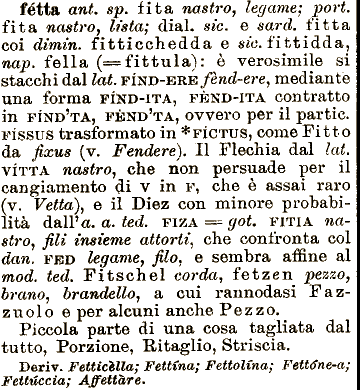 fétta ant. sp. fita nastro, legame; port.
fita nastro, lista; dial. sic. e sard. fitta
coi dimin. fitticchedda e sic. fittidda,
nap. fella (=fittula): è verosimile si
stacchi dal lat. FÍND-ERE fènd-ere, mediante
una forma FÍND-ITA, FÈND-ITA contratto
in FÍND'TA, FÈND'TA, ovvero per il partic.
FÍSSUS trasformato in *FÍCTUS, come Fitto
da fixus (v. Fendere). Il Flechia dal lat.
VÍTTA nastro, che non persuade per il
cangiamento di V in F, che è assai raro
(v. Vetta), e il Diez con minore probabi-
lità dall'a. a. ted. FIZA = got. FITIA na-
stro, fili insieme attorti, che confronta col
dan. FED legame, filo, e sembra affine al
mod. ted. Fitschel corda, fetzen pezzo,
brano, brandello, a cui rannodasi Faz-
zuolo e per alcuni anche Pezzo.
Piccola parte di una cosa tagliata dal
tutto, Porzione, Ritaglio, Striscia.
Deriv. Fetticèlla; Fettína; Fettolína; Fettóne-a;
Fettúccia; Affettàre.